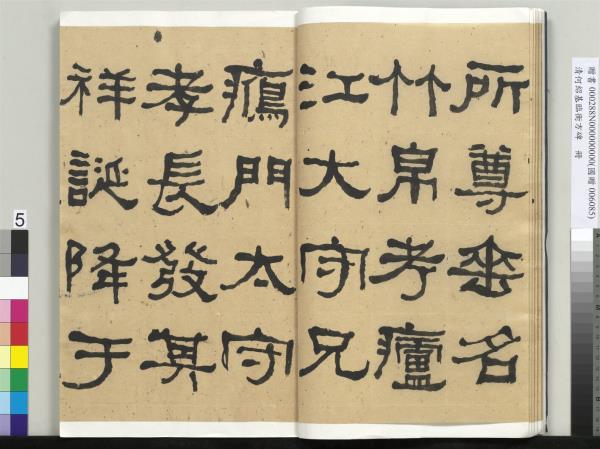 所尊垂名
竹帛考廬
江大守兄
鴈門太守
孝長發其
祥誕降于
贈書 000288N000000000(國贈 006085)
清何紹基臨衡方碑 冊
5